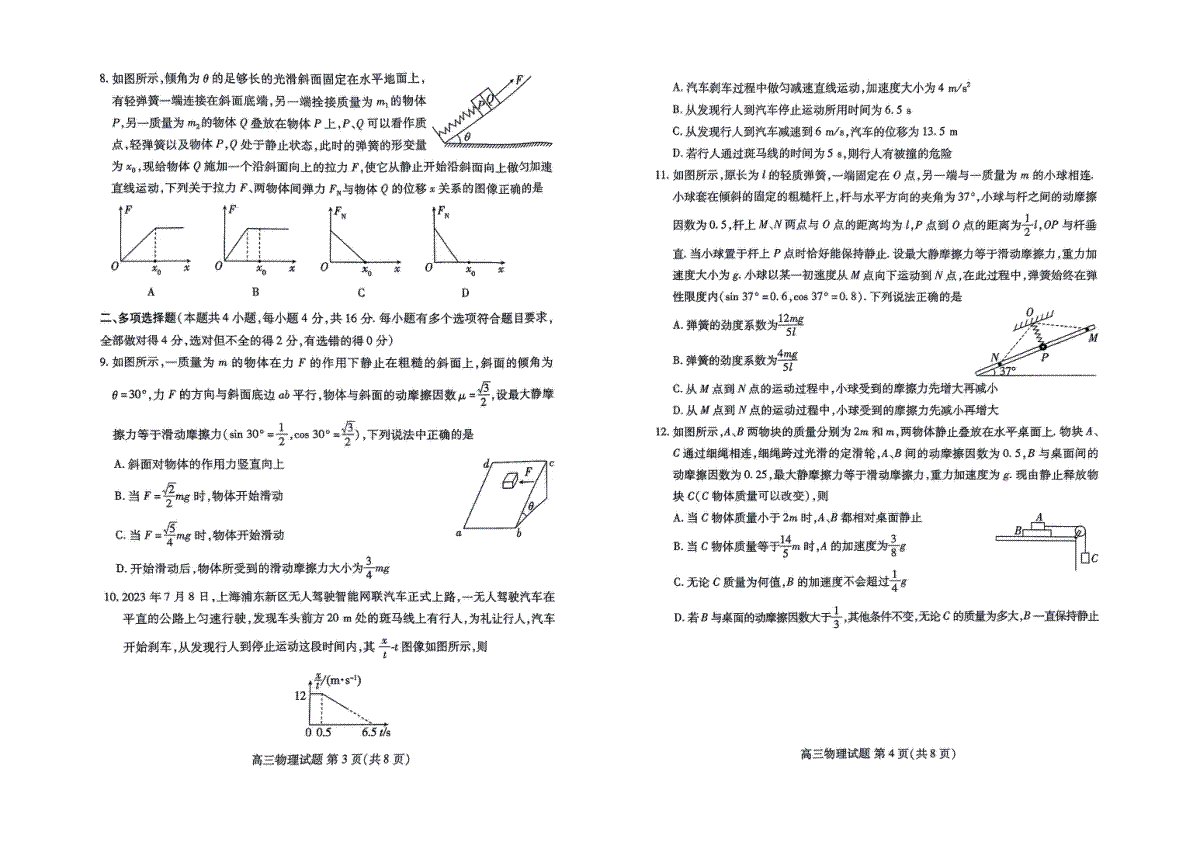 8. 如图所示,倾角为 θ 的足够长的光滑斜面固定在水平地面上,
有轻弹簧一端连接在斜面底端,另一端拴接质量为 m₁ 的物体
P,另一质量为 m₂的物体 Q 叠放在物体 P 上,P、Q 可以看作质
点,轻弹簧以及物体 P,Q 处于静止状态,此时的弹簧的形变量
为 x₀,现给物体 Q 施加一个沿斜面向上的拉力 F,使它从静止开始沿斜面向上做匀加速
直线运动,下列关于拉力 F、两物体间弹力 F_N与物体 Q 的位移 x 关系的图像正确的是
F
P
Q
θ
F
O
x₀
x
A
F
O
x₀
x
B
F_N
O
x₀
x
C
F_N
O
x₀
x
D
二、多项选择题(本题共 4 小题,每小题 4 分,共 16 分. 每小题有多个选项符合题目要求,
全部做对得 4 分,选对但不全的得 2 分,有选错的得 0 分)
9. 如图所示,一质量为 m 的物体在力 F 的作用下静止在粗糙的斜面上,斜面的倾角为
θ=30°,力 F 的方向与斜面底边 ab 平行,物体与斜面的动摩擦因数 μ=√3/2,设最大静摩
擦力等于滑动摩擦力(sin 30°=1/2,cos 30°=√3/2),下列说法中正确的是
A. 斜面对物体的作用力竖直向上
B. 当 F=√2/2 mg 时,物体开始滑动
C. 当 F=√5/4 mg 时,物体开始滑动
D. 开始滑动后,物体所受到的滑动摩擦力大小为3/4 mg
d
c
F
θ
a
b
10. 2023 年 7 月 8 日,上海浦东新区无人驾驶智能网联汽车正式上路,一无人驾驶汽车在
平直的公路上匀速行驶,发现车头前方 20 m 处的斑马线上有行人,为礼让行人,汽车
开始刹车,从发现行人到停止运动这段时间内,其 x/t-t 图像如图所示,则
x/t/(m·s⁻¹)
12
0 0.5 6.5 t/s
高三物理试题 第 3 页(共 8 页)
A. 汽车刹车过程中做匀减速直线运动,加速度大小为 4 m/s²
B. 从发现行人到汽车停止运动所用时间为 6.5 s
C. 从发现行人到汽车减速到 6 m/s,汽车的位移为 13.5 m
D. 若行人通过斑马线的时间为 5 s,则行人有被撞的危险
11. 如图所示,原长为 l 的轻质弹簧,一端固定在 O 点,另一端与一质量为 m 的小球相连.
小球套在倾斜的固定的粗糙杆上,杆与水平方向的夹角为 37°,小球与杆之间的动摩擦
因数为 0.5,杆上 M、N 两点与 O 点的距离均为 l,P 点到 O 点的距离为1/2 l,OP 与杆垂
直. 当小球置于杆上 P 点时恰好能保持静止. 设最大静摩擦力等于滑动摩擦力,重力加
速度大小为 g. 小球以某一初速度从 M 点向下运动到 N 点,在此过程中,弹簧始终在弹
性限度内(sin 37°=0.6,cos 37°=0.8). 下列说法正确的是
A. 弹簧的劲度系数为12mg/5l
B. 弹簧的劲度系数为4mg/5l
C. 从 M 点到 N 点的运动过程中,小球受到的摩擦力先增大再减小
D. 从 M 点到 N 点的运动过程中,小球受到的摩擦力先减小再增大
O
M
N
P
37°
12. 如图所示,A、B 两物块的质量分别为 2m 和 m,两物体静止叠放在水平桌面上. 物块 A、
C 通过细绳相连,细绳跨过光滑的定滑轮,A、B 间的动摩擦因数为 0.5,B 与桌面间的
动摩擦因数为 0.25,最大静摩擦力等于滑动摩擦力,重力加速度为 g. 现由静止释放物
块 C(C 物体质量可以改变),则
A. 当 C 物体质量小于 2m 时,A、B 都相对桌面静止
B. 当 C 物体质量等于14/5 m 时,A 的加速度为3/8 g
C. 无论 C 质量为何值,B 的加速度不会超过1/4 g
D. 若 B 与桌面的动摩擦因数大于1/3,其他条件不变,无论 C 的质量为多大,B 一直保持静止
A
B
C
高三物理试题 第 4 页(共 8 页)